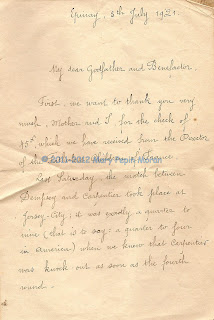 Epinay, 5th July, 1921.
My dear Godfather and Benefactor
First, we want to thank you very
much, Mother and I for the check of
45f, which we have received from the Director
of the
Last Saturday, the match between
Dempsey and Carpentier took place at
Jersey-City; it was exactly a quarter to
nine (that is to say: a quarter to four
in America) when we knew that Carpentier
was knock-out as soon as the fourth
round.